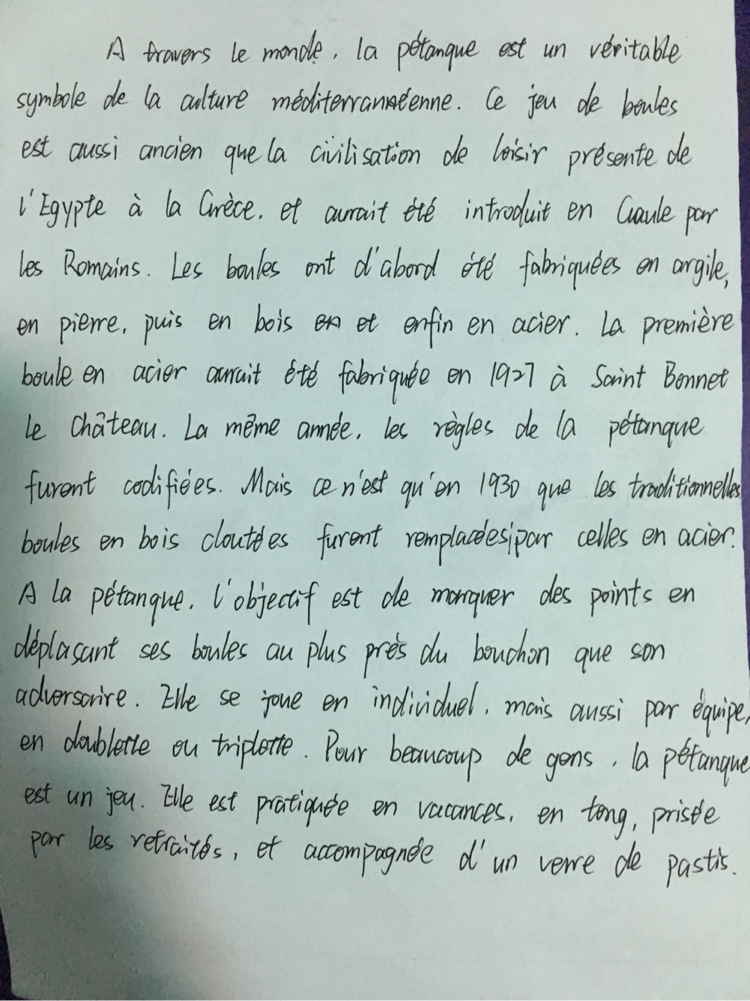 A travers le monde, la pétanque est un véritable
symbole de la culture méditerrannéenne. Ce jeu de boules
est aussi ancien que la civilisation de loisir présente de
l'Egypte à la Grèce, et aurait été introduit en Gaule par
les Romains. Les boules ont d'abord été fabriquées en argile,
en pierre, puis en bois et enfin en acier. La première
boule en acier aurait été fabriquée en 1927 à Saint Bonnet
le Château. La même année, les règles de la pétanque
furent codifiées. Mais ce n'est qu'en 1930 que les traditionnelles
boules en bois cloutées furent remplacées par celles en acier.
A la pétanque, l'objectif est de marquer des points en
déplaçant ses boules au plus près du bouchon que son
adversaire. Elle se joue en individuel, mais aussi par équipe,
en doublette ou triplette. Pour beaucoup de gens, la pétanque
est un jeu. Elle est pratiquée en vacances, en tong, prisée
par les retraités, et accompagnée d'un verre de pastis.